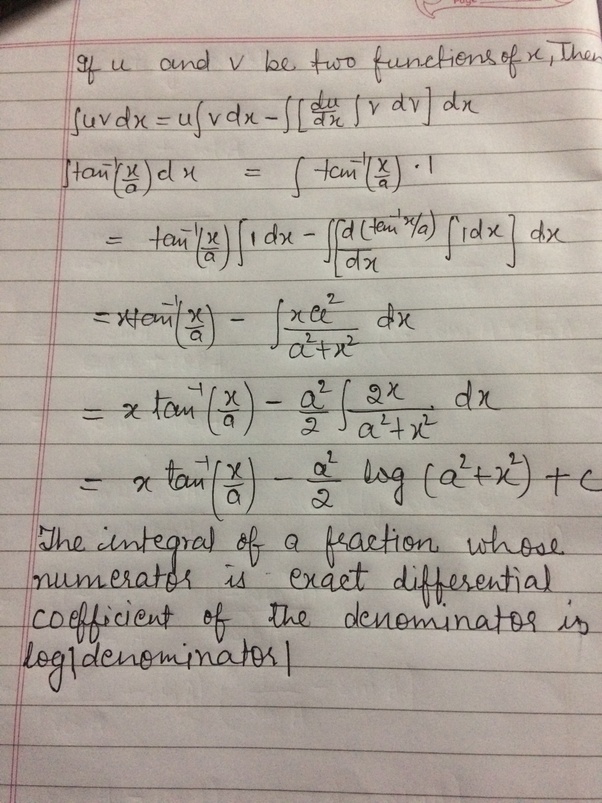 If u and v be two functions of x, Then
∫uv dx = u∫v dx - ∫[du/dx ∫v dv] dx
∫tan⁻¹(x/a) dx = ∫ tan⁻¹(x/a) · 1
= tan⁻¹(x/a) ∫1 dx - ∫[d(tan⁻¹x/a)/dx ∫1dx] dx
= x tan⁻¹(x/a) - ∫ xa²/a²+x² dx
= x tan⁻¹(x/a) - a²/2 ∫ 2x/a²+x² . dx
= x tan⁻¹(x/a) - a²/2 log (a²+x²) + c
The integral of a fraction whose
numerator is exact differential
coefficient of the denominator is
log|denominator|